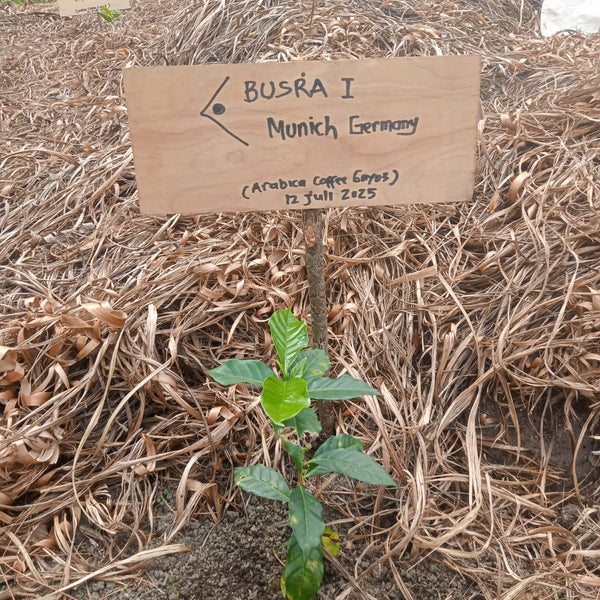 BUSRA I
Munich Germany
(Arabica Coffee Gayos)
12 Juli 2025